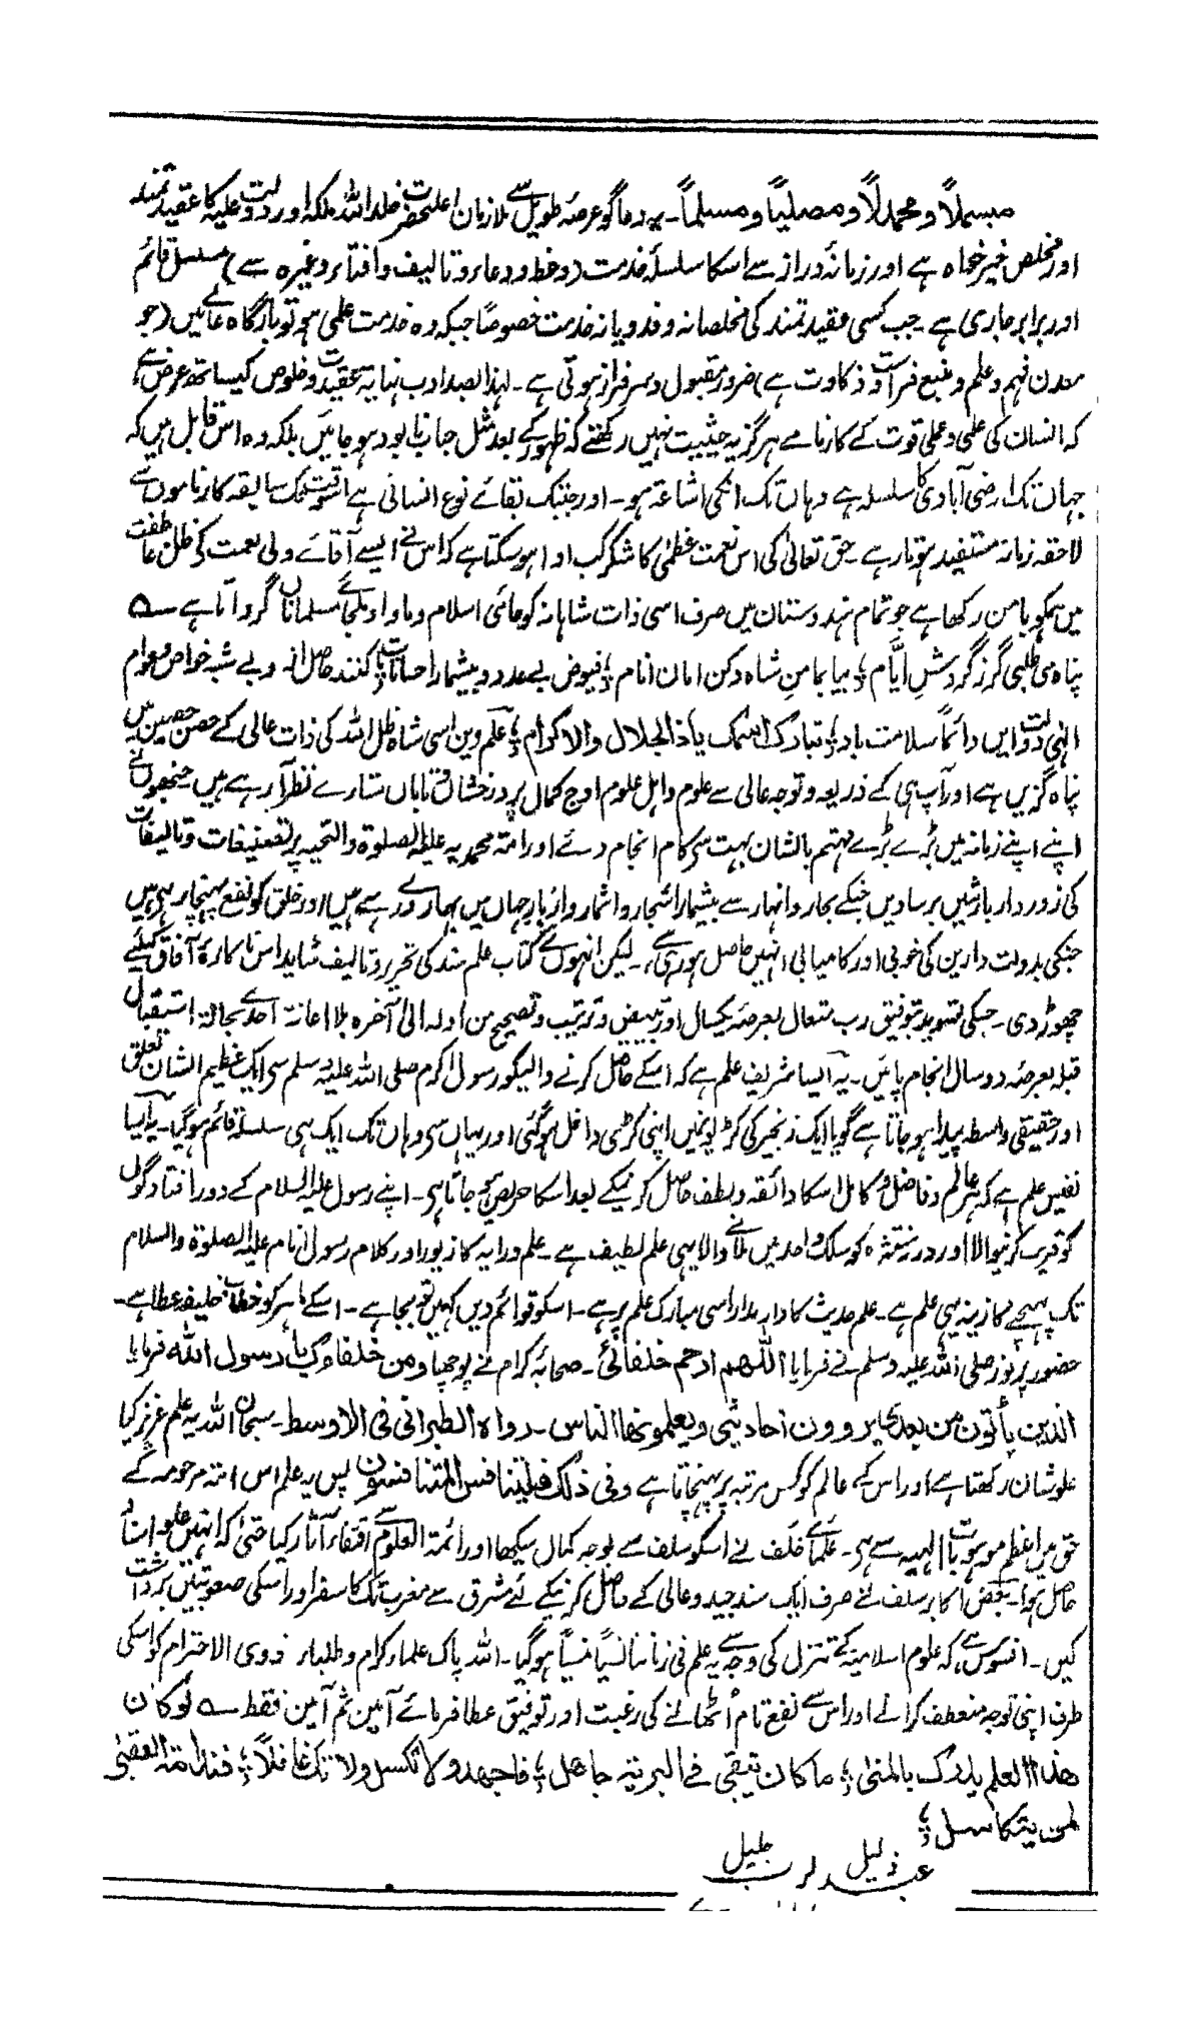 مبسملاً و محمدلاً و مصلیاً و مسلماً۔ یہ دعا گو عرصۂ طویل سے ملازمان اعلیحضرت خلد اللہ ملکہ اور دولت علیہ کا عقیدتمند
اور مخلص خیر خواہ ہے اور زمانۂ دراز سے اسکا سلسلۂ خدمت (وعظ و دعاء و تالیف و افتاء وغیرہ سے) مسلسل قائم
اور برابر جاری ہے۔ جب کسی عقیدتمند کی مخلصانہ و فدویانہ خدمت خصوصاً جبکہ وہ خدمت علمی ہو تو بارگاہ عالی میں (جو
معدن فہم و علم و منبع فراست و ذکاوت ہے) ضرور مقبول و سرفراز ہوتی ہے۔ لہذا بصد ادب نہایت عقیدت و خلوص کیساتھ عرض ہے
کہ انسان کی علمی و عملی قوت کے کارنامے ہرگز یہ حیثیت نہیں رکھتے کہ ظہور کے بعد مثل حباب نابود ہو جائیں بلکہ وہ اس قابل ہیں کہ
جہاں تک ارضی آبادی کا سلسلہ ہے وہاں تک انکی اشاعت ہو۔ اور جبتک بقائے نوع انسانی ہے اسوقت تک سابقہ کارناموں سے
لاحقہ زمانہ مستفید ہوتا رہے۔ حق تعالیٰ کی اس نعمت عظمیٰ کا شکر کب ادا ہو سکتا ہے کہ اس نے ایسے آقائے ولی نعمت کی ظل عاطفت
میں ہمکو بامن رکھا ہے جو تمام ہندوستان میں صرف اسی ذات شاہانہ کو حامی اسلام و ماوا و ملجائے مسلمانان گردانا ہے ؎
پناہ می طلبی گر ز گردشِ ایّام ؛ بیا بمامنِ شاہ دکن امان انام ؛ فیوض بے عدد و بیشمار احسانات ؛ کنند حاصل ازو بے شبہ خواص و عوام
الٰہی دولت ایں دائماً سلامت باد ؛ تبارک اسمک یا ذا الجلال والاکرام ؛ علم دین اسی شاہ ظل اللہ کی ذات عالی کے حصن حصین میں
پناہ گزیں ہے اور آپ ہی کے ذریعہ و توجہ عالی سے علوم و اہل علوم اوج کمال پر درخشاں و تاباں ستارے نظر آ رہے ہیں جنھوں نے
اپنے اپنے زمانہ میں بڑے بڑے مہتم بالشان بہت سی کام انجام دئے اور امت محمدیہ علیہ الصلوۃ والتحیہ پر تصنیفات و تالیفات
کی زوردار بارشیں برسا دیں جنکے بحار و انہار سے بیشمار اشجار و اثمار و ازہار جہاں میں بہار دے رہے ہیں اور خلق کو نفع پہنچا رہی ہیں
جنکی بدولت دارین کی خوبی اور کامیابی انہیں حاصل ہو رہی ہے۔ لیکن انہوں نے کتاب علم سند کی تحریر و تالیف شاید اس ناکارۂ آفاق کیلئے
چھوڑ دی۔ جسکی تسوید بتوفیق رب متعال بعرصۂ یکسال اور تبییض و ترتیب و تصحیح من اولہ الیٰ آخرہ بلا اعانت احدے بحالت استقبال
قبلہ بعرصۂ دو سال انجام پائیں۔ یہ ایسا شریف علم ہے کہ اسکے حاصل کرنے والیکو رسول اکرم صلی اللہ علیہ وسلم سی ایک عظیم الشان تعلق
اور حقیقی واسطہ پیدا ہو جاتا ہے گویا ایک زنجیر کی کڑیونمیں اپنی کڑی داخل ہو گئی اور یہاں سی وہاں تک ایک ہی سلسلہ قائم ہو گیا۔ یہ ایسا
نفیس علم ہے کہ ہر عالم و فاضل و کامل اسکا ذائقہ و لطف حاصل کرنیکے بعد اسکا حریص ہو جاتا ہی۔ اپنے رسول علیہ السلام کے دور افتادگوں
کو قریب کرنیوالا اور درر منتشرہ کو سلک واحد میں لانے والا یہی علم لطیف ہے۔ علم درایہ کا زیور اور کلام رسول انام علیہ الصلوۃ والسلام
تک پہنچنے کا زینہ یہی علم ہے۔ علم حدیث کا دار مدار اسی مبارک علم پر ہے۔ اسکو قوائم دیں کہیں تو بجا ہے۔ اسکے ماہر کو خطاب خلیفہ عطا ہے۔
حضور پرنور صلی اللہ علیہ وسلم نے فرمایا اللھم ارحم خلفائی۔ صحابۂ کرام نے پوچھا ومن خلفاءک یا رسول اللہ فرمایا
الذین یأتون من بعدی یروون احادیثی ویعلمونھا الناس۔ رواہ الطبرانی فی الاوسط۔ سبحان اللہ یہ علم عزیز کیا
علوشان رکھتا ہے اور اس کے عالم کو کس مرتبہ پر پہنچاتا ہے وفی ذلک فلیتنافس المتنافسون پس یہ علم اس امت مرحومہ کے
حق میں اعظم موہوبات الٰہیہ سے ہی۔ علمائے خلف نے اسکو سلف سے بوجہ کمال سیکھا اور ائمۃ العلوم سے اقتفاء آثار کیا حتیٰ کہ انہیں علو اسناد
حاصل ہوا۔ بعض اکابر سلف نے صرف ایک سند جید و عالی کے حاصل کرنیکے لئے مشرق سے مغرب تک کا سفر اور اسکی صعوبتیں برداشت
کیں۔ افسوس ہے کہ علوم اسلامیہ کے تنزل کی وجہ سے یہ علم فی زماننا نسیاً منسیاً ہو گیا۔ اللہ پاک علماء کرام و طلباء ذوی الاحترام کو اسکی
طرف اپنی توجہ منعطف کرانے اور اس سے نفع تام اُٹھانے کی رغبت اور توفیق عطا فرمائے آمین ثم آمین فقط ؎ لوکان
ھذا العلم یدرک بالمنیٰ ؛ ما کان یبقیٰ فی البریۃ جاھل ؛ فاجھد ولا تکسل ولا تک غافلاً ؛ فندامۃ العقبیٰ
لمن یتکاسل ؛
عبد ذلیل لرب جلیل